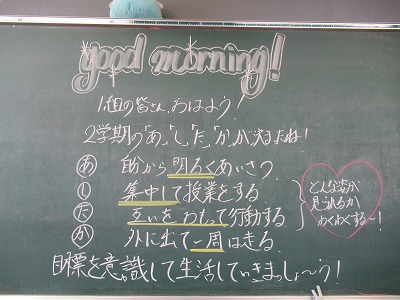 good morning!
1組の皆さん、おはよう!
2学期の「あ」、「し」、「た」、「か」が決まったね!
あ 自分から明るくあいさつ
し 集中して授業をする
た 互いをわかって行動する
か 外に出て一周は走る
どんな姿が
見られるか
わくわくする〜!
目標を意識して生活していきましょ〜う!